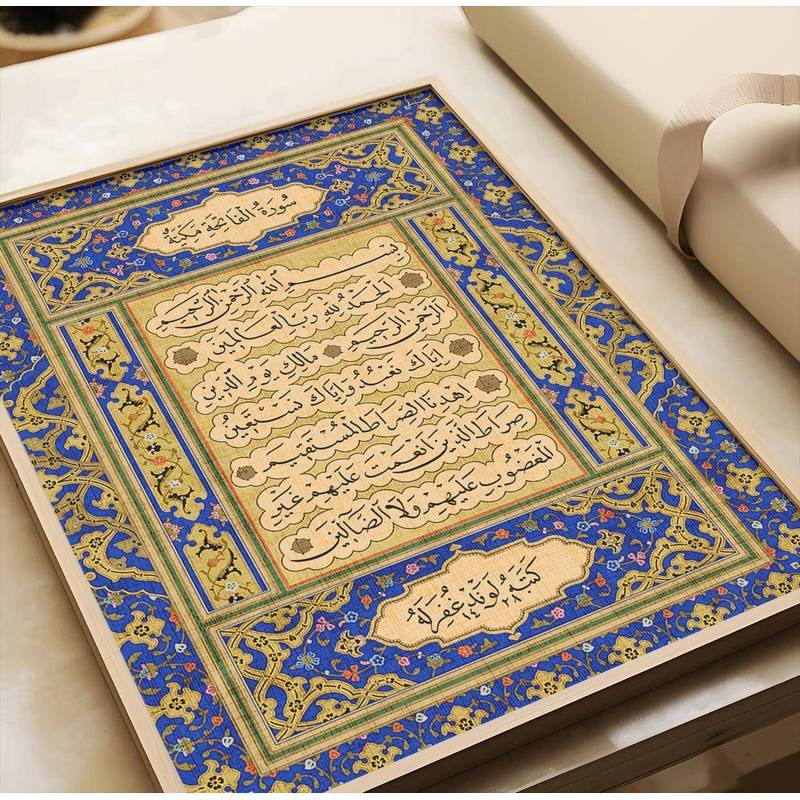 سُورَةُ الْفَاتِحَةِ مَكِّيَّةٌ
بِسْمِ اللَّهِ الرَّحْمَٰنِ الرَّحِيمِ
الْحَمْدُ لِلَّهِ رَبِّ الْعَالَمِينَ
الرَّحْمَٰنِ الرَّحِيمِ مَالِكِ يَوْمِ الدِّينِ
إِيَّاكَ نَعْبُدُ وَإِيَّاكَ نَسْتَعِينُ
اهْدِنَا الصِّرَاطَ الْمُسْتَقِيمَ
صِرَاطَ الَّذِينَ أَنْعَمْتَ عَلَيْهِمْ غَيْرِ
الْمَغْضُوبِ عَلَيْهِمْ وَلَا الضَّالِّينَ
كَتَبَهُ لَوَنْد غُفِرَ لَهُ